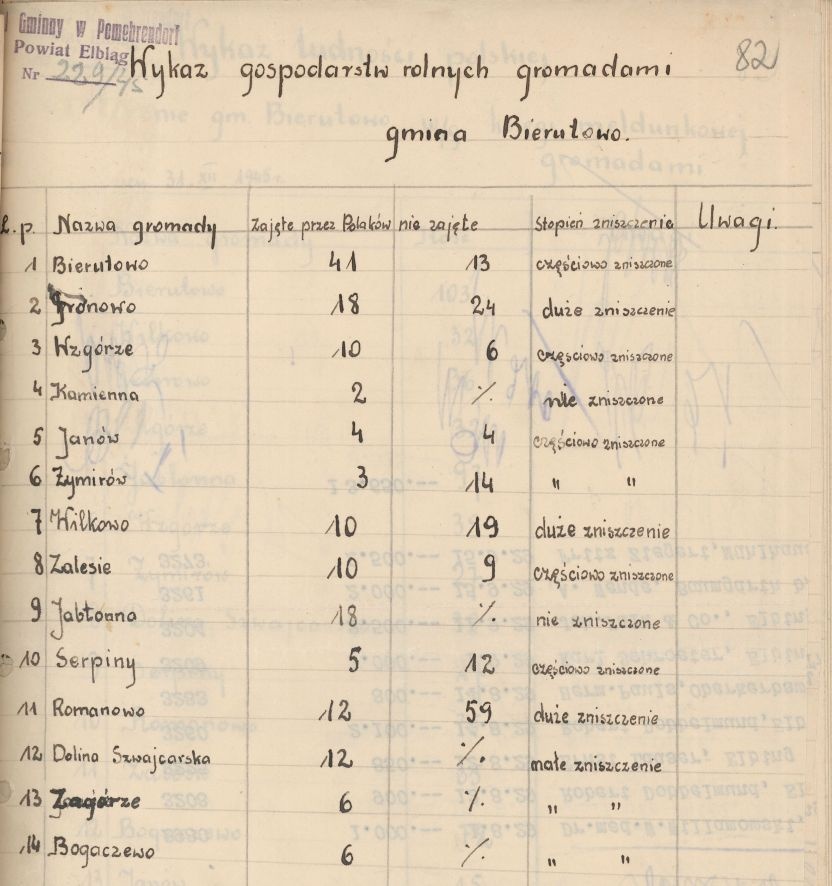 Gminy w Pomehrendorf
Powiat Elbląg
Nr 229/45
82
Wykaz gospodarstw rolnych gromadami
gmina Bierutowo.
L.p. Nazwa gromady Zajęte przez Polaków nie zajęte Stopień zniszczenie Uwagi.
1 Bierutowo 41 13 częściowo zniszczone
2 Gronowo 18 24 duże zniszczenie
3 Wzgórze 10 6 częściowo zniszczone
4 Kamienna 2 ·/. nie zniszczone
5 Janów 4 4 częściowo zniszczone
6 Żymirów 3 14 " "
7 Wilkowo 10 19 duże zniszczenie
8 Zalesie 10 9 częściowo zniszczone
9 Jabłonna 18 ·/. nie zniszczone
10 Serpiny 5 12 częściowo zniszczone
11 Romanowo 12 59 duże zniszczenie
12 Dolina Szwajcarska 12 ·/. małe zniszczenie
13 Zagórze 6 ·/. " "
14 Bogaczewo 6 ·/. " "